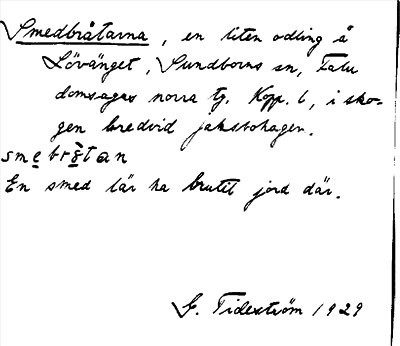 Smedbråtarna, en liten odling å
Lövänget, Sundborns sn, Falu
domsagas norra tg. Kopp. l, i sko-
gen bredvid jaksbohagen.
smebrɔ̀tan
En smed lär ha brutit jord där.
G. Tideström 1929